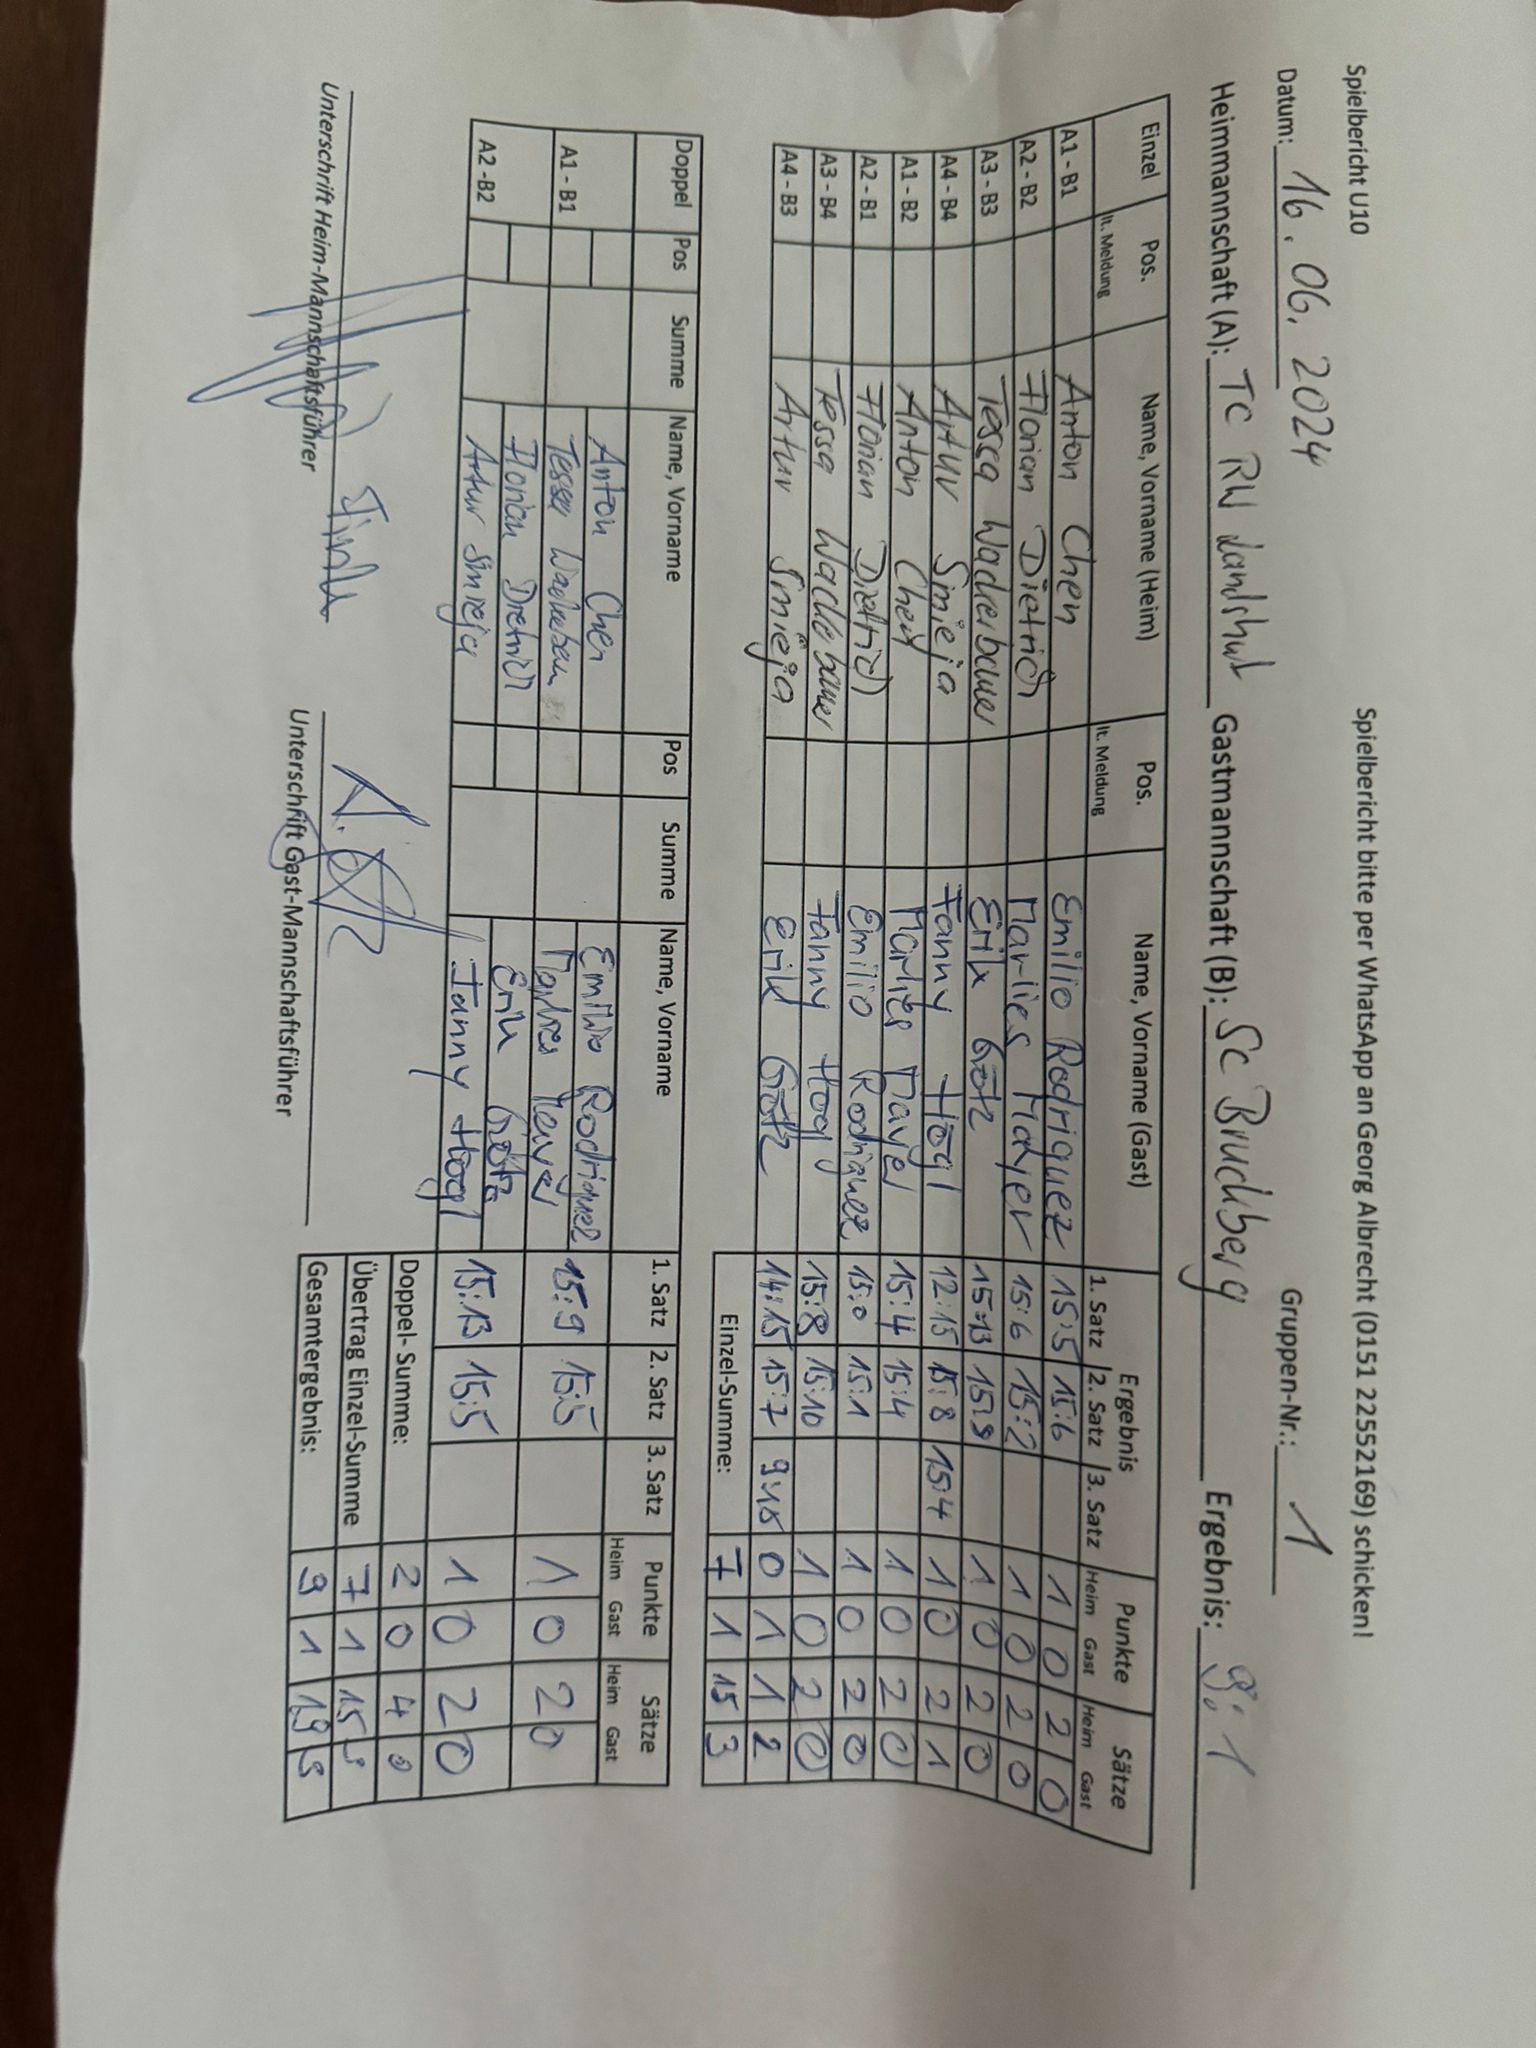 Spielbericht U10 Spielbericht bitte per WhatsApp an Georg Albrecht (0151 22552169) schicken!
Datum: 16. 06. 2024 Gruppen-Nr.: 1
Heimmannschaft (A): TC RW Landshut Gastmannschaft (B): SC Bruckberg Ergebnis: 9:1
Einzel Pos. Name, Vorname (Heim) Pos. Name, Vorname (Gast) Ergebnis Punkte Sätze
lt. Meldung lt. Meldung 1. Satz 2. Satz 3. Satz Heim Gast Heim Gast
A1 - B1 Anton Chen Emilio Rodriguez 15:5 15:6 1 0 2 0
A2 - B2 Florian Dietrich Marlies Mayer 15:6 15:2 1 0 2 0
A3 - B3 Tessa Wackerbauer Erik Götz 15:13 15:9 1 0 2 0
A4 - B4 Artur Smieja Fanny Högl 12:15 15:8 15:4 1 0 2 1
A1 - B2 Anton Chen Marlies Mayer 15:4 15:4 1 0 2 0
A2 - B1 Florian Dietrich Emilio Rodriguez 15:0 15:1 1 0 2 0
A3 - B4 Tessa Wackerbauer Fanny Högl 15:8 15:10 1 0 2 0
A4 - B3 Artur Smieja Erik Götz 14:15 15:7 9:15 0 1 1 2
Einzel-Summe: 7 1 15 3
Doppel Pos Summe Name, Vorname Pos Summe Name, Vorname 1. Satz 2. Satz 3. Satz Punkte Sätze
Heim Gast Heim Gast
Anton Chen Emilio Rodriguez
A1 - B1 15:9 15:5 1 0 2 0
Tessa Wackerbauer Marlies Mayer
Florian Dietrich Erik Götz
A2 -B2 15:13 15:5 1 0 2 0
Artur Smieja Fanny Högl
Doppel- Summe: 2 0 4 0
Übertrag Einzel-Summe 7 1 15 3
Gesamtergebnis: 9 1 19 3
Unterschrift Heim-Mannschaftsführer Unterschrift Gast-Mannschaftsführer